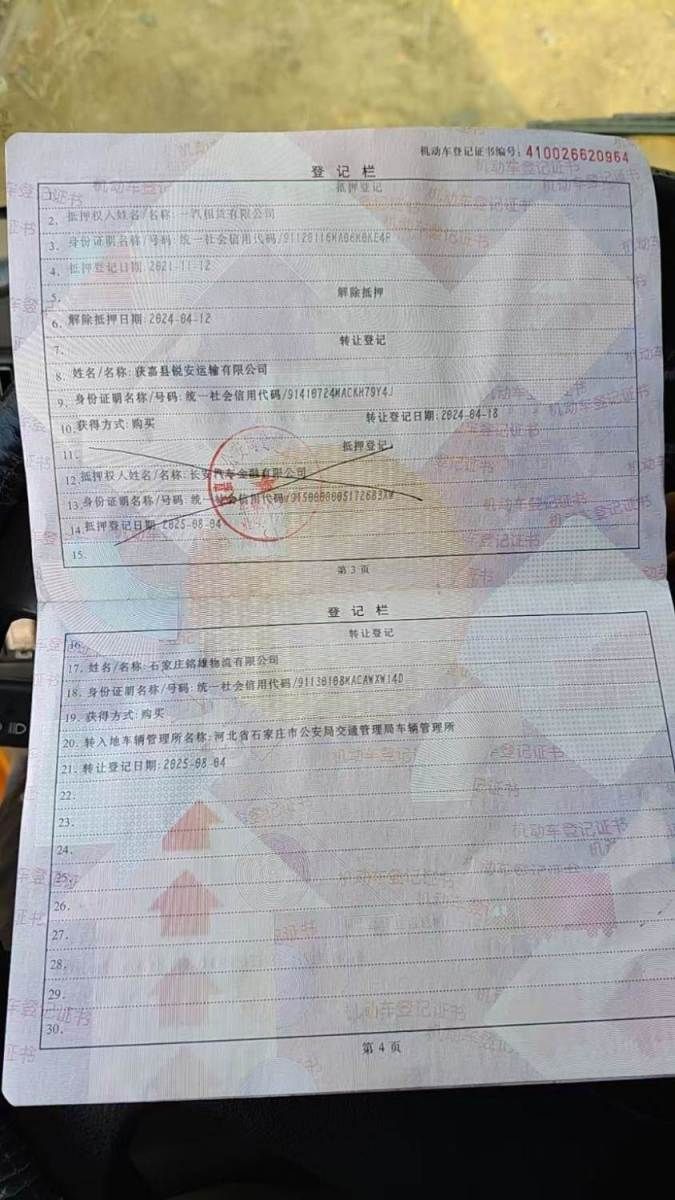 机动车登记证书编号：410026620964
登记栏
抵押登记
2. 抵押权人姓名/名称：一汽租赁有限公司
3. 身份证明名称/号码：统一社会信用代码/91120116MA06K0KE4R
4. 抵押登记日期：2021-11-12
5. 解除抵押
6. 解除抵押日期：2024-04-12
7. 转让登记
8. 姓名/名称：获嘉县锐安运输有限公司
9. 身份证明名称/号码：统一社会信用代码/91410724MACKH79Y4J
10. 获得方式：购买 转让登记日期：2024-04-18
11. 抵押登记
12. 抵押权人姓名/名称：长安汽车金融有限公司
13. 身份证明名称/号码：统一社会信用代码
14. 抵押登记日期：2025-08-04
15.
第 3 页
登记栏
16. 转让登记
17. 姓名/名称：石家庄铭雄物流有限公司
18. 身份证明名称/号码：统一社会信用代码/91130108MACAWXW14D
19. 获得方式：购买
20. 转入地车辆管理所名称：河北省石家庄市公安局交通管理局车辆管理所
21. 转让登记日期：2025-08-04
22.
23.
24.
25.
26.
27.
28.
29.
30.
第 4 页